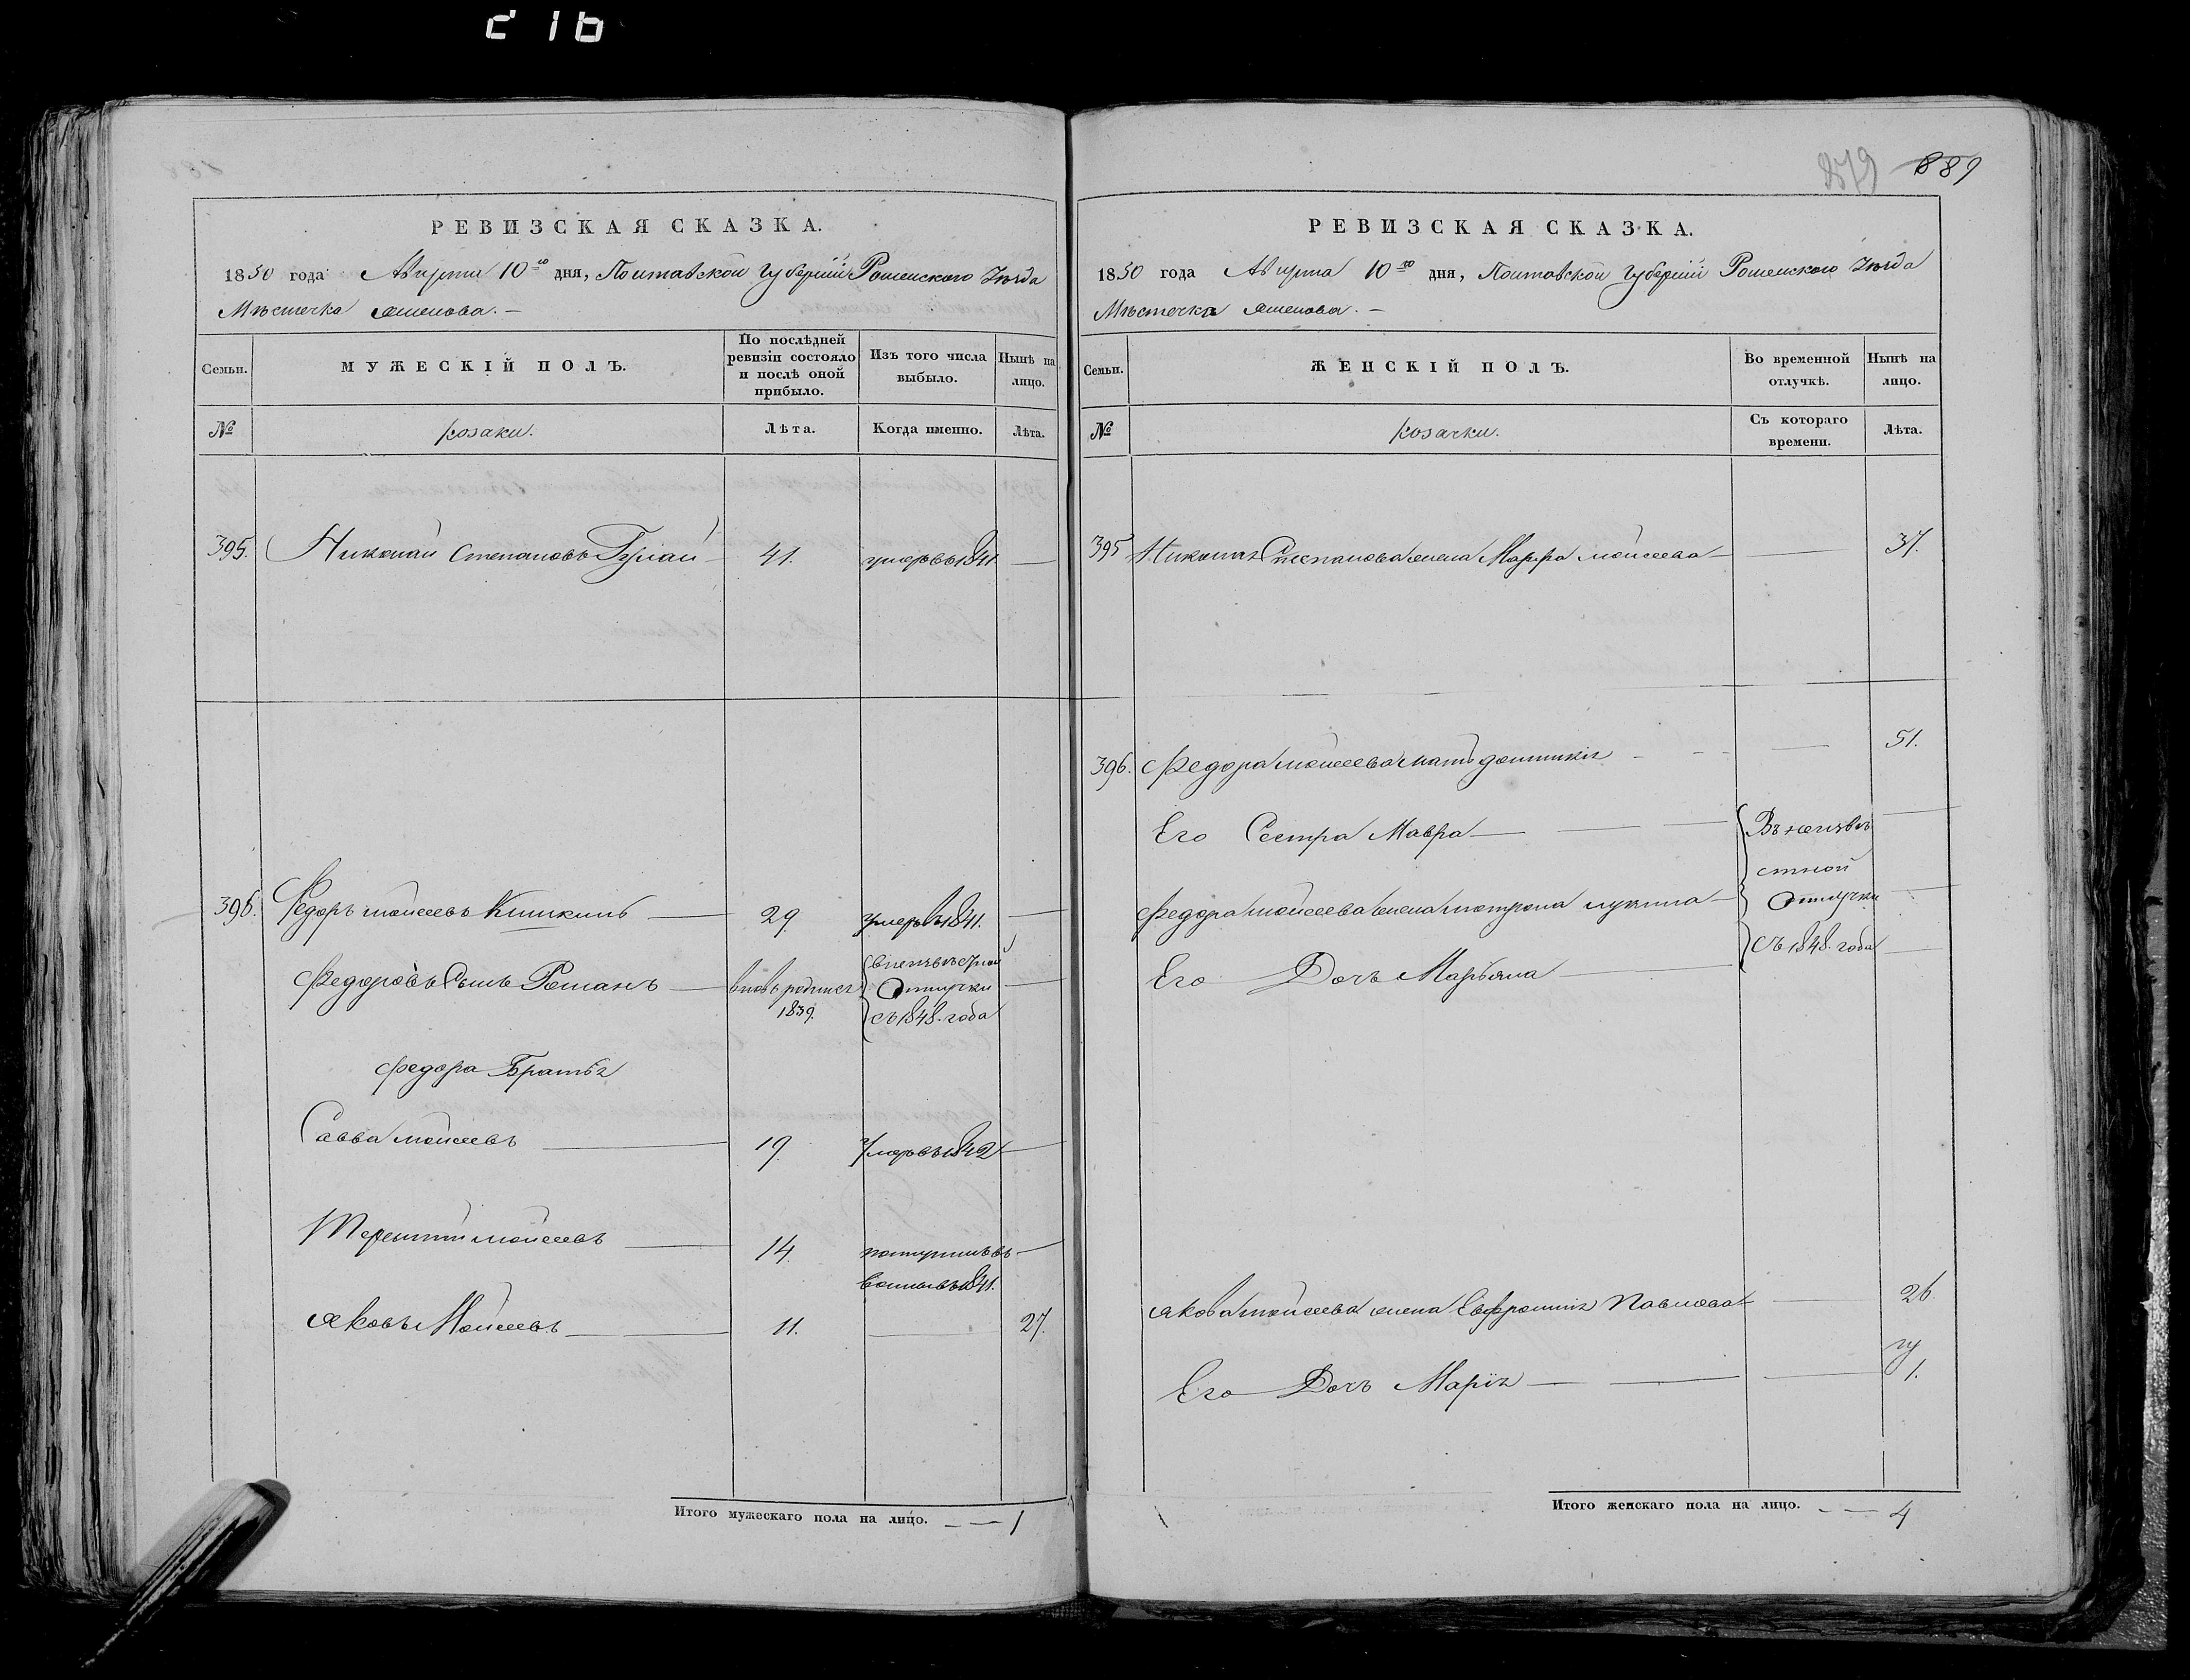 РЕВИЗСКАЯ СКАЗКА.
1850 года Августа 10го дня, Полтавской Губерніи Роменского Уезда
Мѣстечка
Семьи.
МУЖЕСКІЙ ПОЛЪ.
По послѣдней ревизіи состояло и послѣ оной прибыло.
Изъ того числа выбыло.
Нынѣ на лицо.
№
Козаки.
Лѣта.
Когда именно.
Лѣта.
395. Николай Степановъ 41. умеръ въ 1841 —
396. Федоръ Моисеевъ Кишкинъ — 29. умеръ въ 1841. —
Федоровъ Сынъ Романъ — вновь родился 1839. в неизвѣстной Отлучки съ 1848. года —
Федора Братья
Савва Моисеевъ — 19. Умеръ въ 1842 —
Терентий Моисеевъ — 14. 1841. —
Яковъ Моисеевъ — 11. — 27.
Итого мужескаго пола на лицо. — — 1
879 889
РЕВИЗСКАЯ СКАЗКА.
1850 года Августа 10го дня, Полтавской Губерніи Роменского Уезда
Мѣстечка
Семьи.
ЖЕНСКІЙ ПОЛЪ.
Во временной отлучкѣ.
Нынѣ на лицо.
№
Козачки.
Съ котораго времени.
Лѣта.
395 Николая Степанова жена Марфа Моисеева — — 37.
396. Федора Моисеева мать — — 51.
Его Сестра Мавра — — Въ неизвѣ
стной
Федора Моисеева жена Мотрона Лукина — Отлучки —
Его Дочь Марьяна — съ 1848. года —
Якова Моисеева жена Евфросиния Павлова — — 26.
Его Дочь Марія — — — 1.
Итого женскаго пола на лицо. — — 4